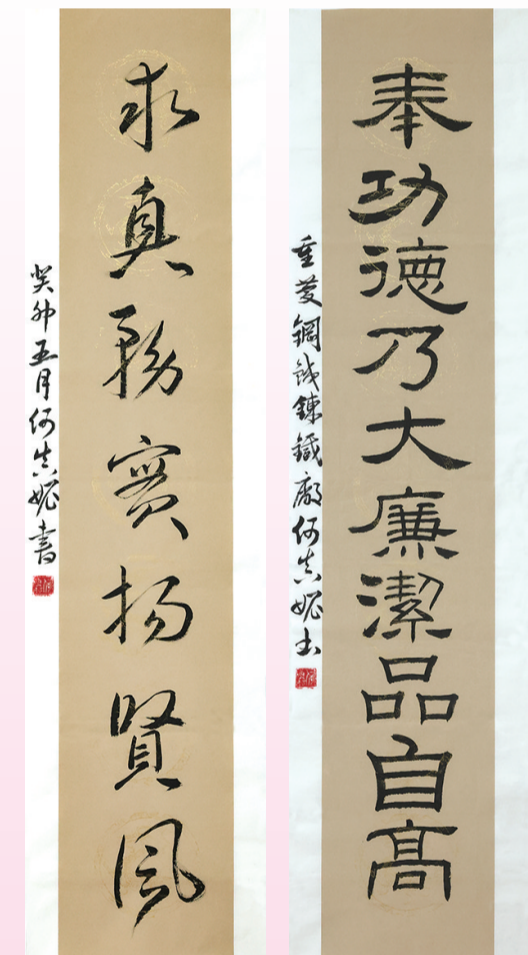 奉功德乃大廉潔品自高
重慶鋼鐵鍊鐵廠何真妮書
求真務實揚賢風
癸卯五月何真妮書